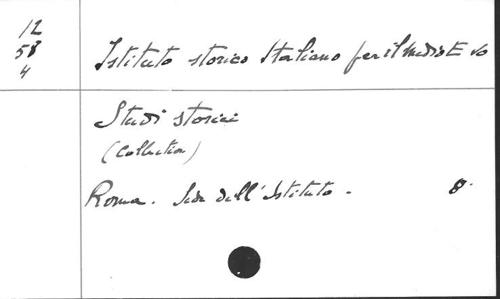 12
58
4
Istituto storico Italiano per il Medio Evo
Studi storici
(Collection)
Roma. Sede dell'Istituto. 8°